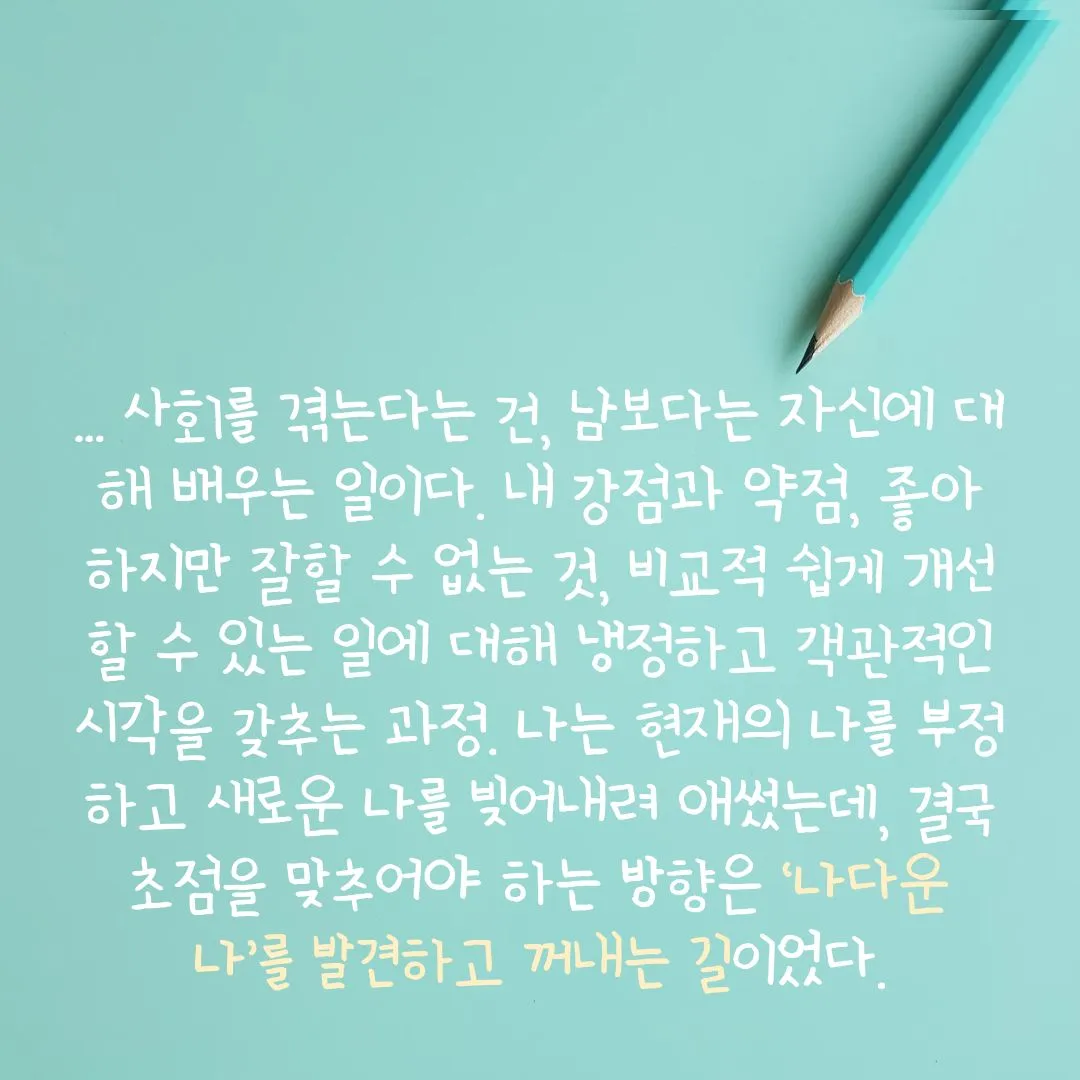 ... 사회를 겪는다는 건, 남보다는 자신에 대
해 배우는 일이다. 내 강점과 약점, 좋아
하지만 잘할 수 없는 것, 비교적 쉽게 개선
할 수 있는 일에 대해 냉정하고 객관적인
시각을 갖추는 과정. 나는 현재의 나를 부정
하고 새로운 나를 빚어내려 애썼는데, 결국
초점을 맞추어야 하는 방향은 ‘나다운
나’를 발견하고 꺼내는 길이었다.